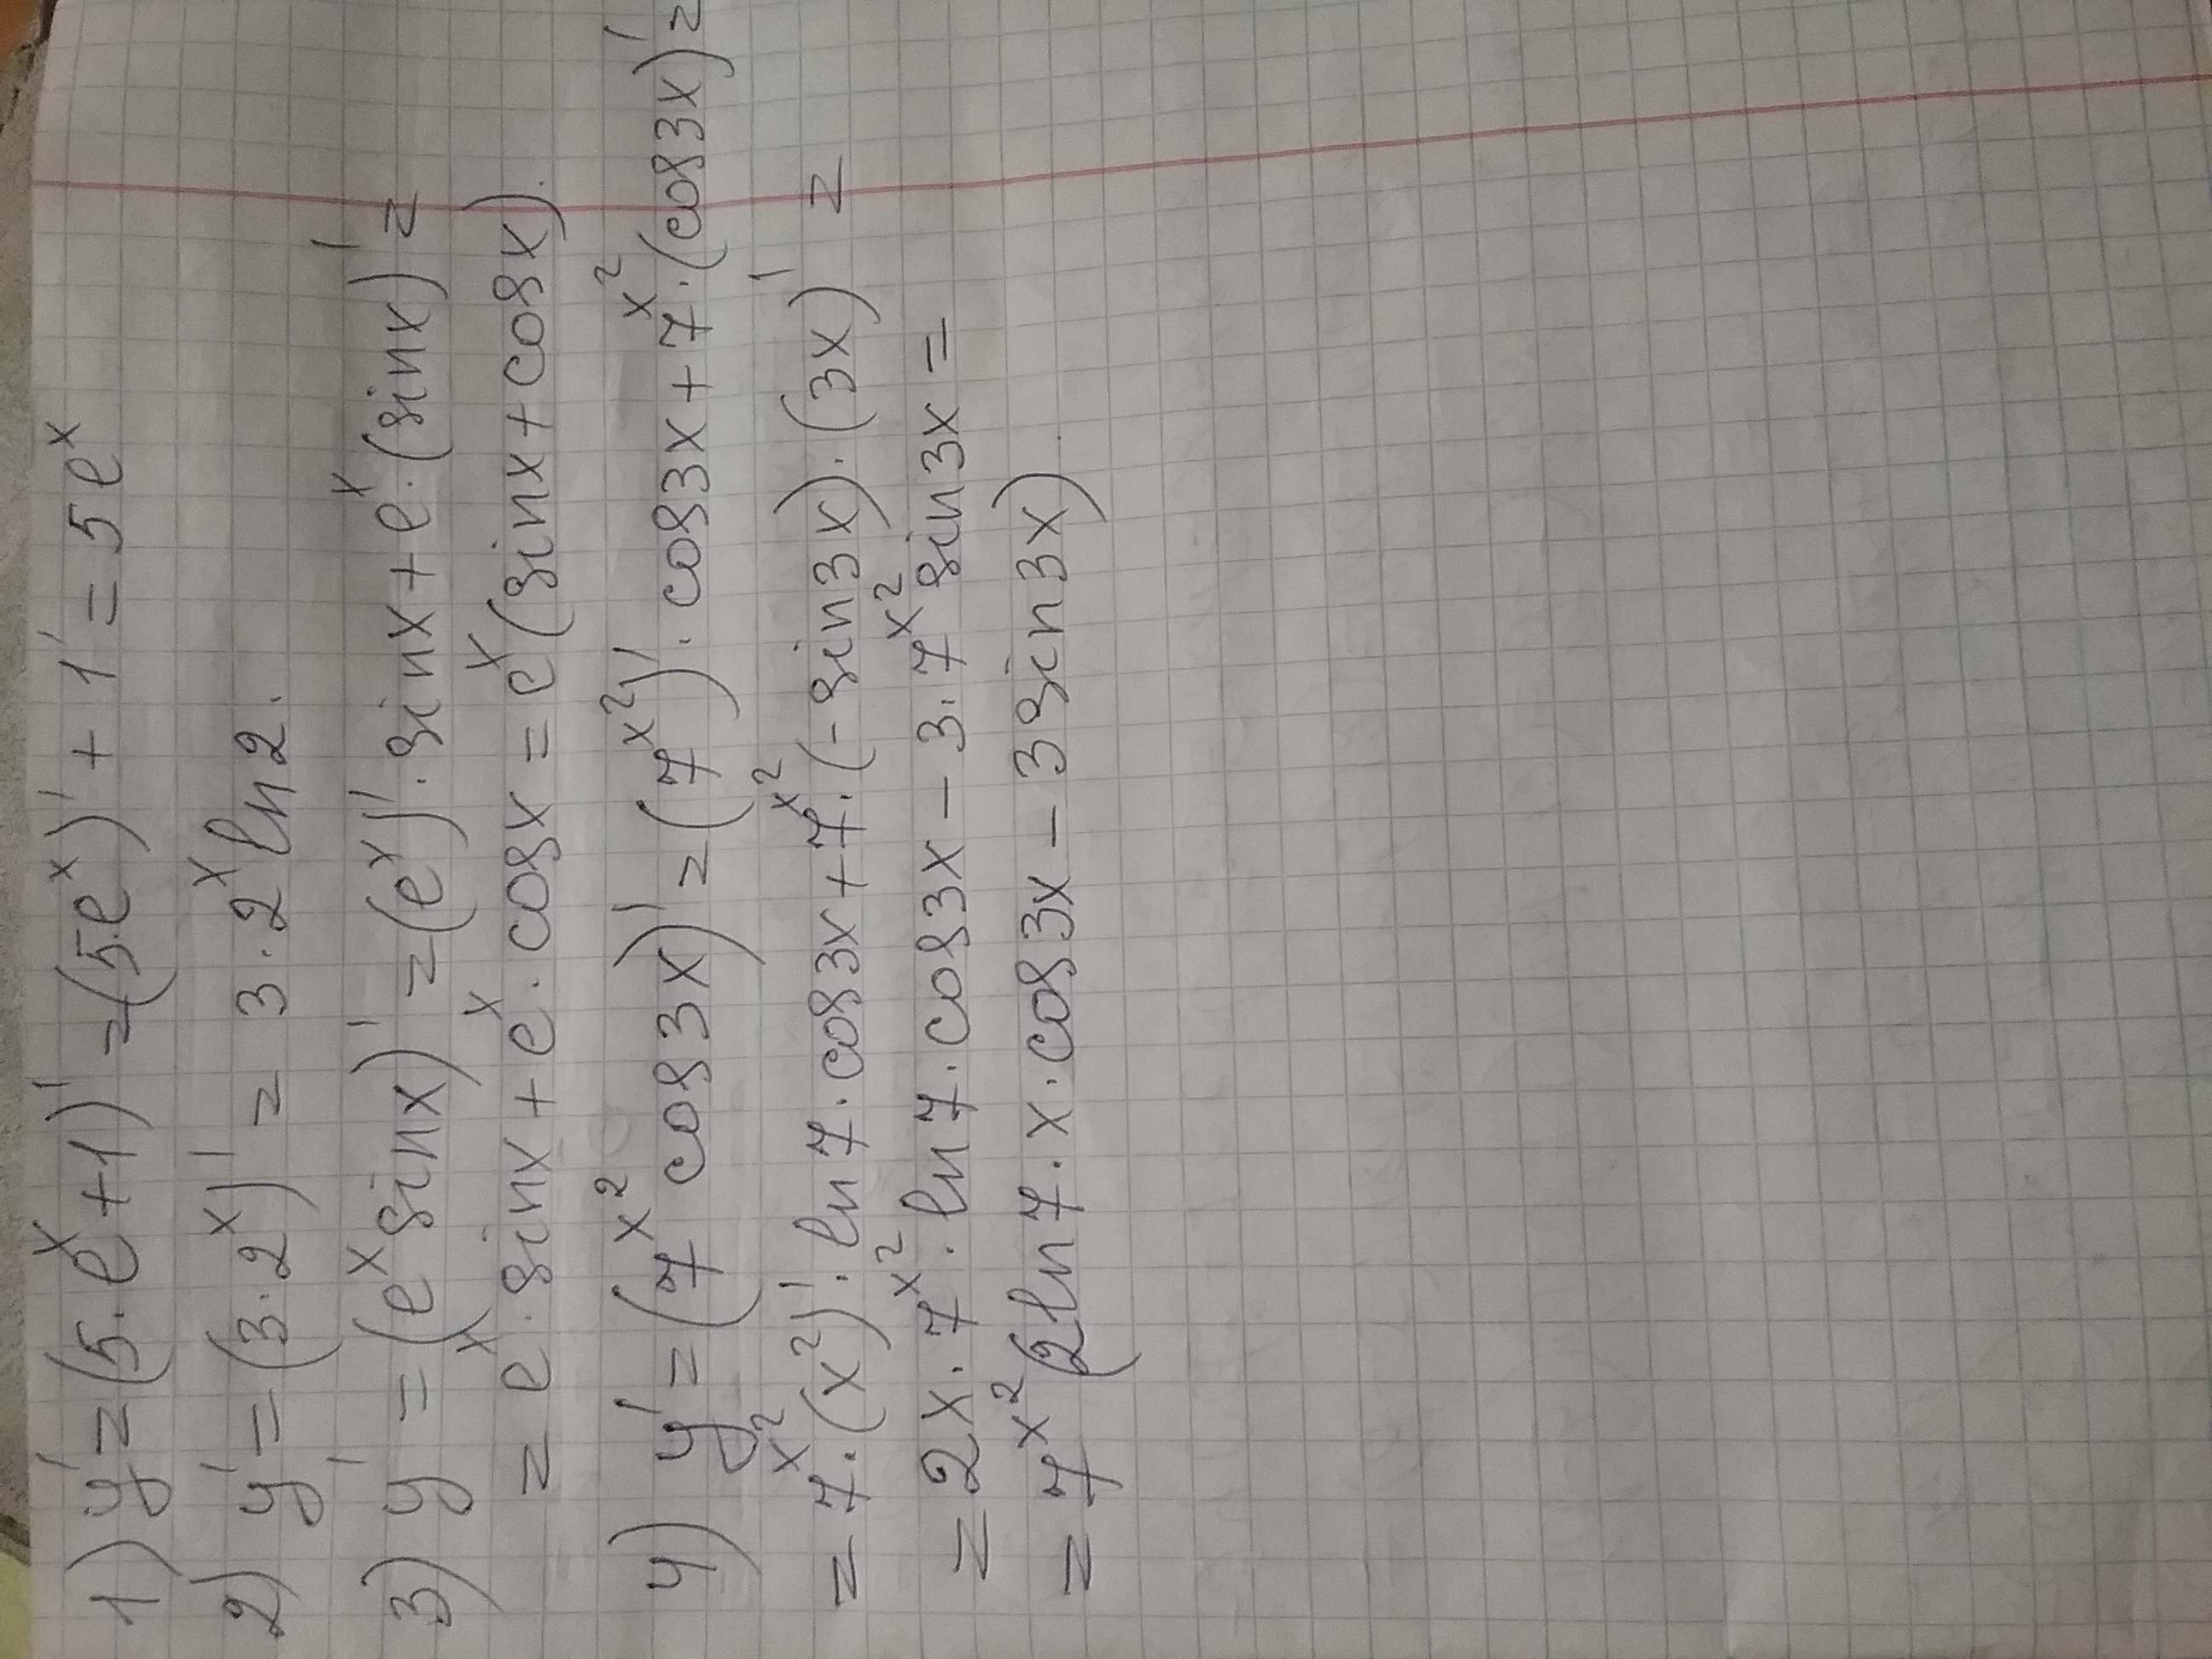 1) y' = (5·eˣ+1)' = (5·eˣ)' + 1' = 5eˣ
2) y' = (3·2ˣ)' = 3·2ˣ ln2.
3) y' = (eˣ sinx)' = (eˣ)'·sinx + eˣ·(sinx)' =
= eˣ·sinx + eˣ·cosx = eˣ(sinx + cosx).
4) y' = (7^x² cos3x)' = (7^x²)'·cos3x + 7^x²·(cos3x)' =
= 7^x²·(x²)'·ln7·cos3x + 7^x²·(-sin3x)·(3x)' =
= 2x·7^x²·ln7·cos3x - 3·7^x² sin3x =
= 7^x²(2ln7·x·cos3x - 3sin3x)